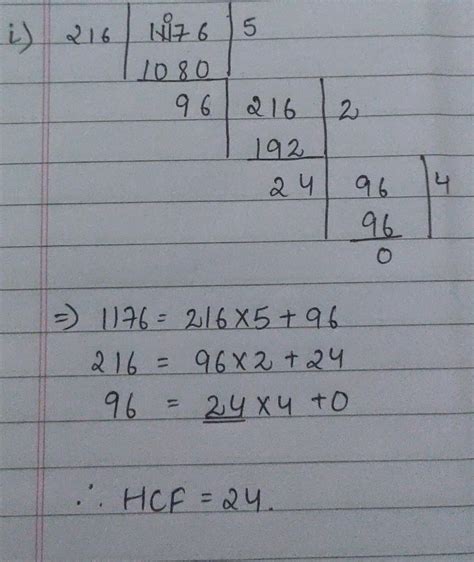 i) 216 | 1176 | 5
1080
96 | 216 | 2
192
24 | 96 | 4
96
0
⇒ 1176 = 216 × 5 + 96
216 = 96 × 2 + 24
96 = 24 × 4 + 0
∴ HCF = 24.